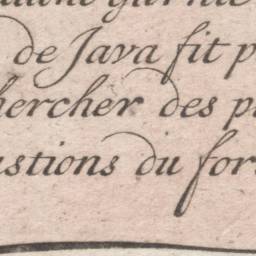 de Java fit p
hercher des p
stions du for